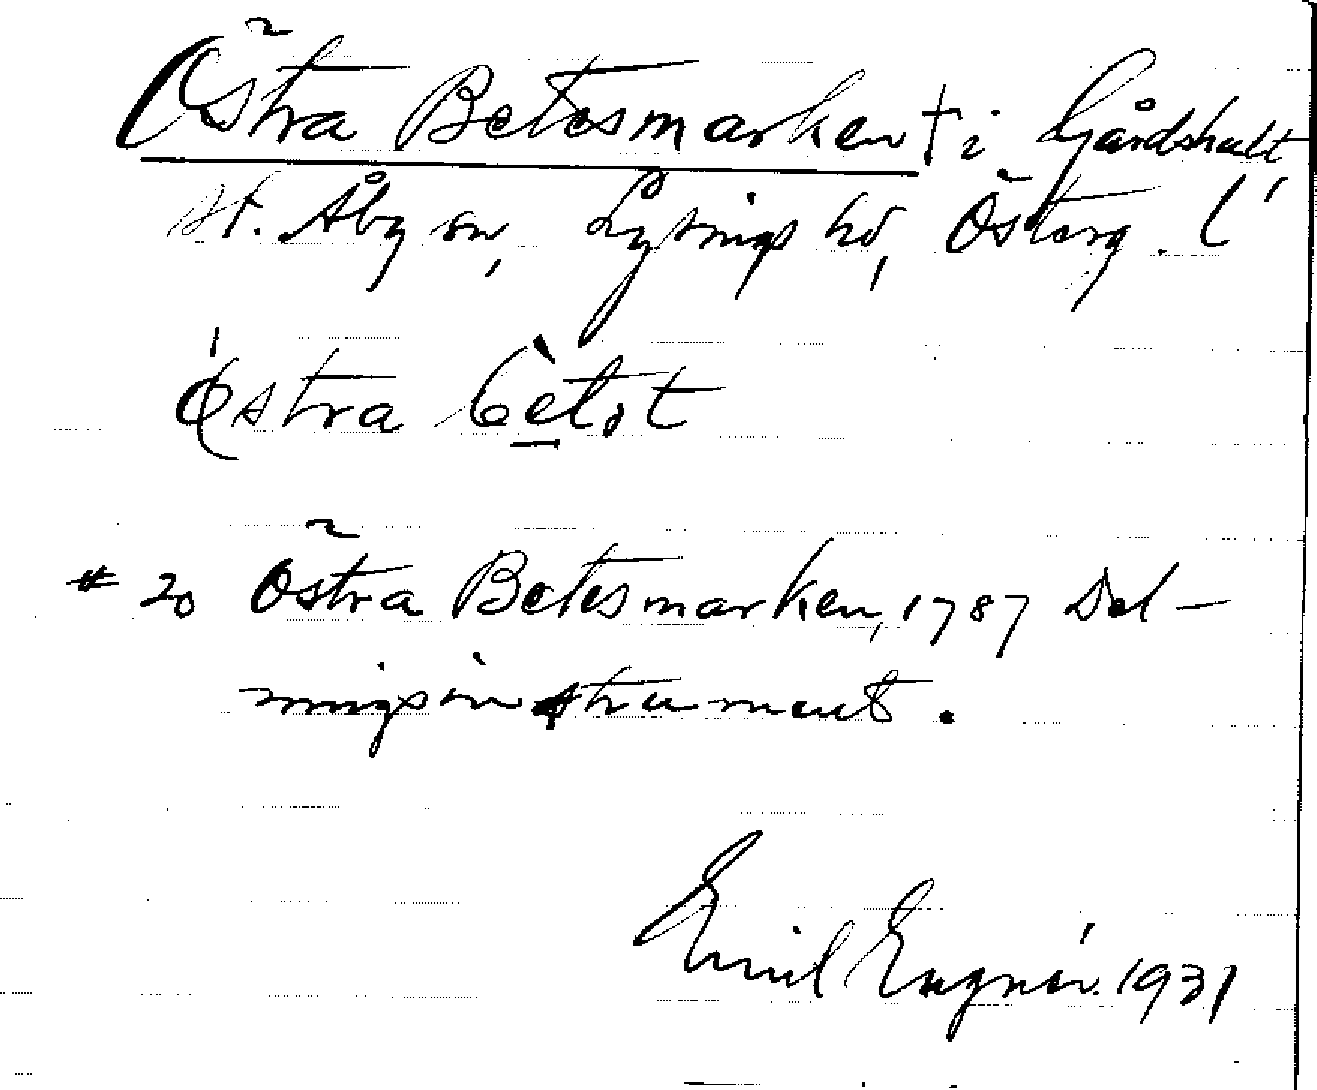 Östra Betesmarken † i Gårdshult,
St. Åby sn, Lysings hd, Österg. l
östra betət
# 20 Östra Betesmarken, 1787 Del-
ningsinstrument.
Emil Engnér. 1931